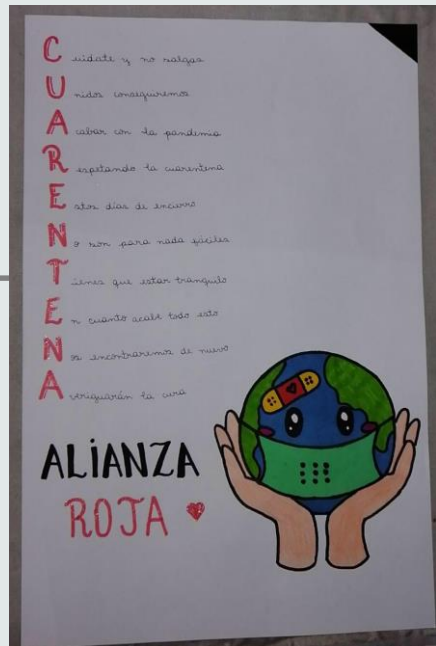 Cuidate y no salgas
Unidos conseguiremos
Acabar con la pandemia
Respetando la cuarentena
Estos días de encierro
No son para nada fáciles
Tienes que estar tranquilo
En cuanto acabe todo esto
Nos encontraremos de nuevo
Averiguarán la cura
ALiANZA
ROJA